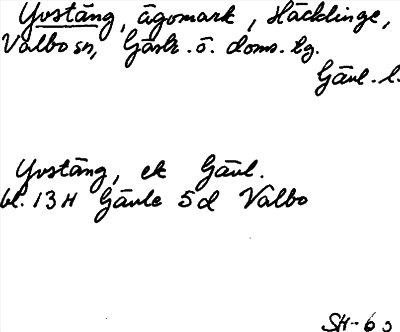 Yvstäng, ägomark, Häcklinge,
Valbo sn, Gästr. ö. doms. lg.
Gävl. l.
Yvstäng, ek Gävl.
bl. 13 H Gävle 5 d Valbo
SH-63